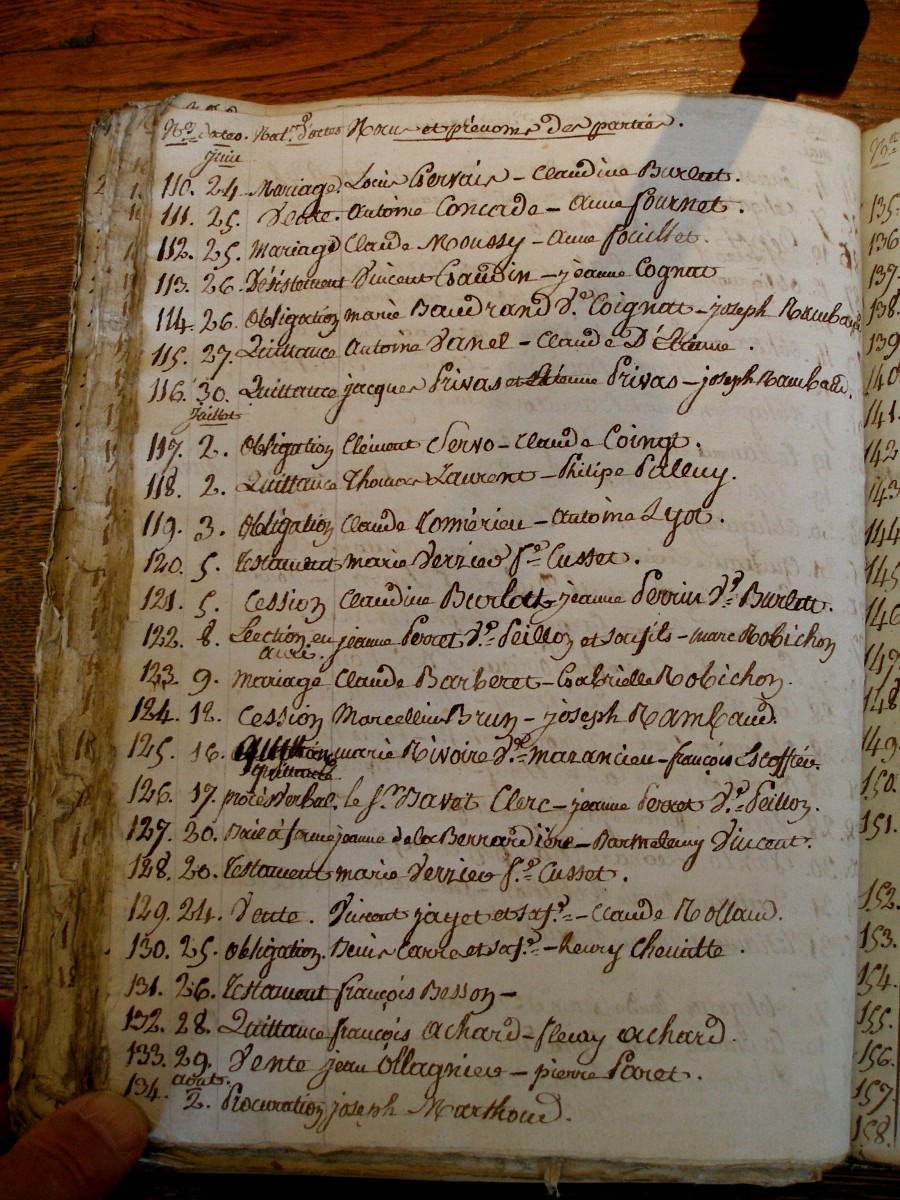 Nos. dates. Nat.re d'actes Noms et prénoms des parties.
juin
110. 24. Mariage. Louis Gervais - Claudine Burlat.
111. 25. Vente. Antoine Concade - Anne Fournet.
112. 25. Mariage Claude Moussy - Anne Pouillet.
113. 26. Désistement Vincent Gaudin - jeanne Cognat
114. 26. Obligation marie Baudrand Ve. Coignat - joseph Rambaud
115. 27. Quittance Antoine Vanel - Claude D'Etienne.
116. 30. Quittance jacques Privas et Etienne Privas - joseph Rambaud.
juillet
117. 2. Obligation Clément Servo - Claude Coingt.
118. 2. Quittance Thomas Laurent - Philipe Palluy.
119. 3. Obligation Claude - Antoine Lyot.
120. 5. Testament marie Verzier fe. Cusset.
121. 5. Cession Claudine Burlat - jeanne Perrin Ve. Burlat.
122. 8. Section en jeanne Perret Ve. Peillon et son fils - marc Robichon
123. 9. mariage Claude Barberet - Gabrielle Robichon.
124. 12. Cession Marcellin Brun - joseph Rambaud.
125. 16. marie Rivoire Ve. mazancieu - françois Escoffier.
quittance
126. 17. procès Verbal. le Sr. Bavet Clerc - jeanne Perret Ve. Peillon.
127. 20. Baie à ferme jeanne de la Berrardière - Barthelemy Vincent.
128. 20. Testament marie Verzier fe. Cusset.
129. 24. Vente. Vincent jayet et sa fe. - Claude Rolland.
130. 25. Obligation. Denis Carre et sa fe. - henry Cheuitte.
131. 26. Testament françois Besson -
132. 28. Quittance françois Achard - fleury Achard.
133. 29. Vente jean Ollagnier - pierre Paret.
aout.
134. 2. Procuration joseph Marthoud.
Nos.
135.
136
137.
138.
139
140
141.
142
143
144
145
146
147
148
149
150.
151.
152.
153.
154.
155.
156.
157.
158.